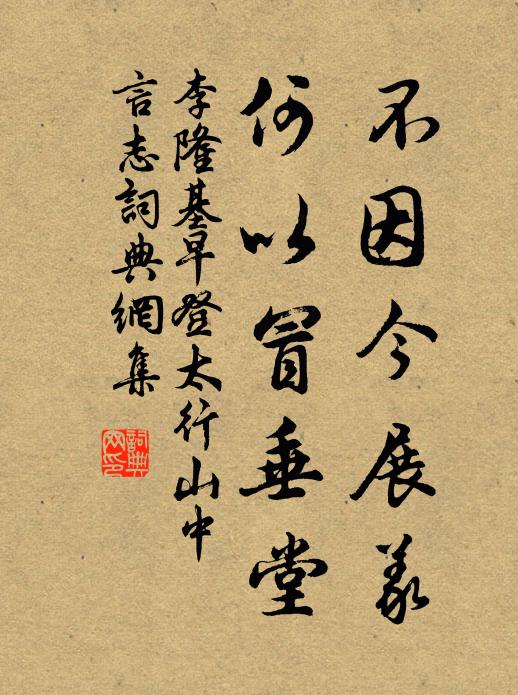 不因今展義
何以冒垂堂
李隆基早登太行山中
言志詞典網集
詞典
网印